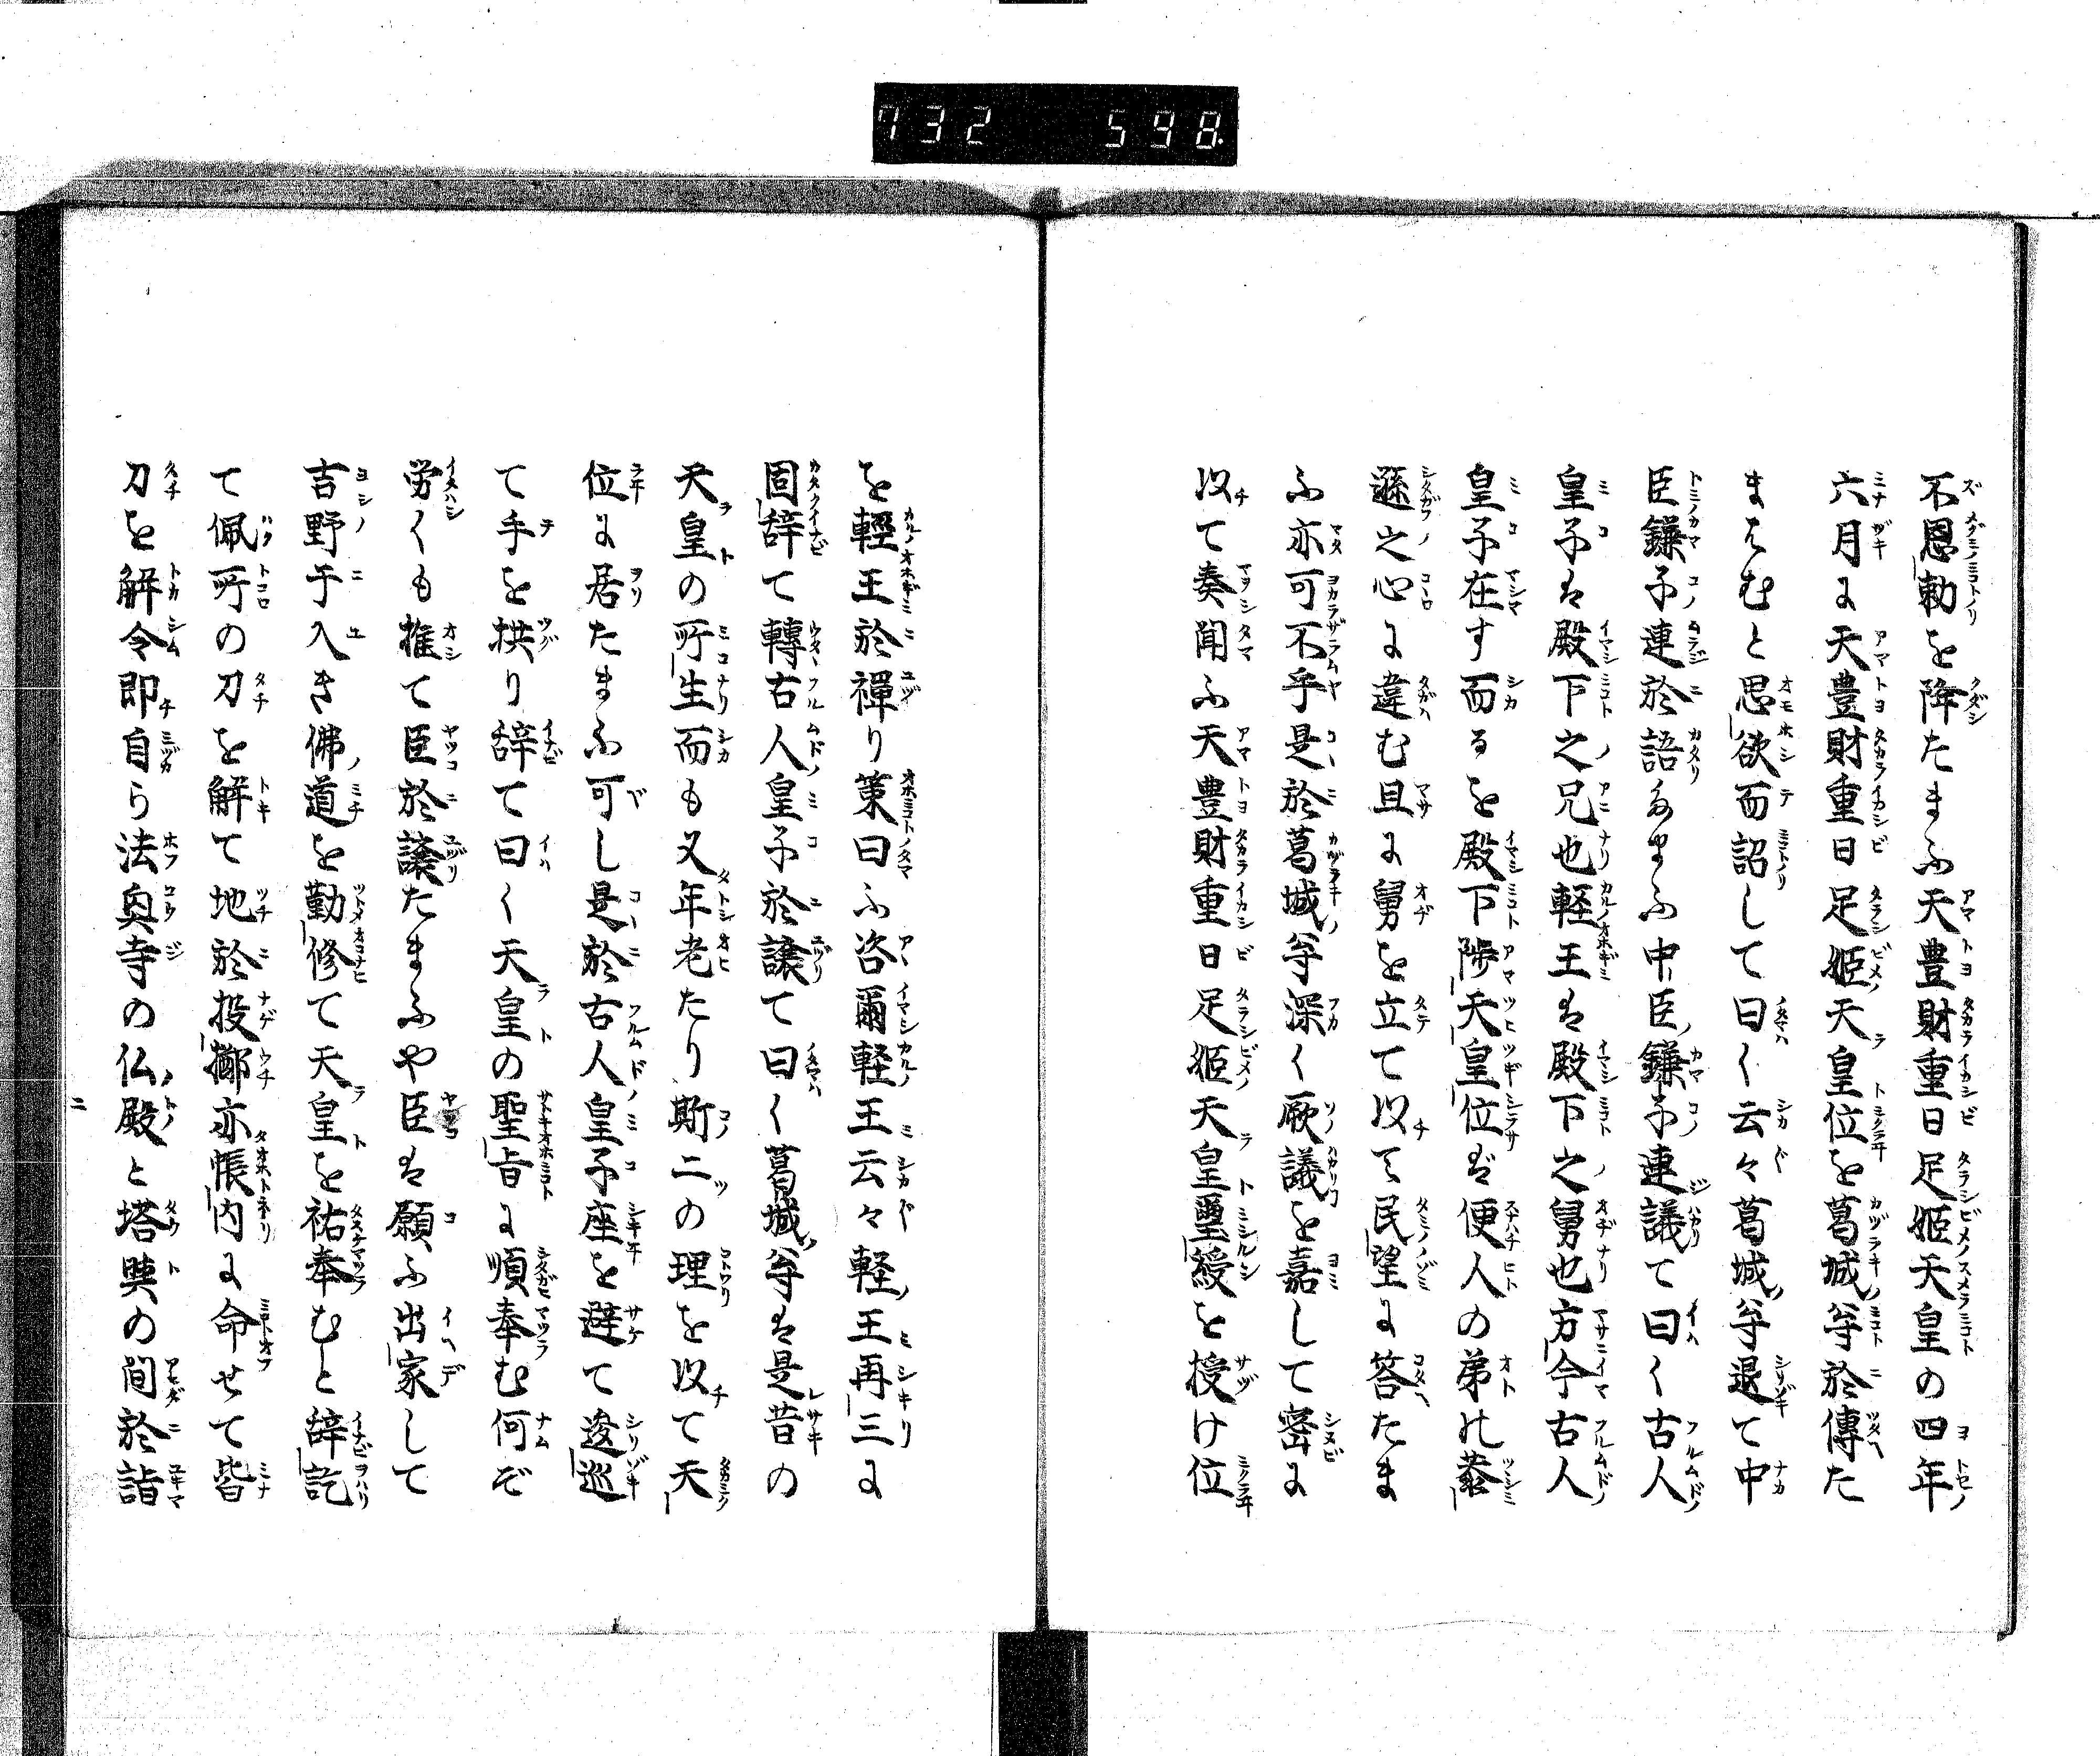 732 598.
不恩勅を降たまふ天豊財重日足姫天皇の四年
六月に天豊財重日足姫天皇位を葛城尊於傳た
まはむと思欲而詔して曰く云々葛城尊退て中
臣鎌子連於語たまふ中臣鎌子連議て曰く古人
皇子は殿下之兄也軽王は殿下之舅也方今古人
皇子在す而るを殿下陟天皇位ば便人の弟の恭
遜之心に違む且に舅を立て以て民望に答たま
ふ亦可不乎是於葛城尊深く厥議を嘉して密に
以て奏聞ふ天豊財重日足姫天皇璽綬を授け位
を輕王於禪り策曰ふ咨爾軽王云々軽王再三に
固辞て轉古人皇子於譲て曰く葛城尊は是昔の
天皇の所生而も又年老たり斯二の理を以て天
位に居たまふ可し是於古人皇子座を避て逡巡
て手を拱り辞て曰く天皇の聖旨に順奉む何ぞ
労くも推て臣於譲たまふや臣は願ふ出家して
吉野于入き佛道を勤修て天皇を祐奉むと辞訖
て佩所の刀を解て地於投擲亦帳内に命せて皆
刀を解令即自ら法興寺の仏殿と塔與の間於詣
二